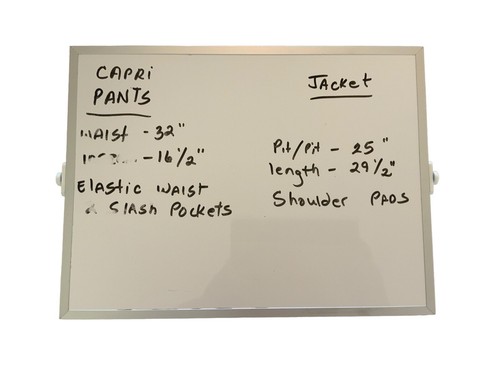 CAPRI
PANTS
WAIST - 32"
- 16 1/2"
Elastic WAIST
Slash Pockets
JAcket
Pit/Pit - 25"
length - 29 1/2"
Shoulder PADS